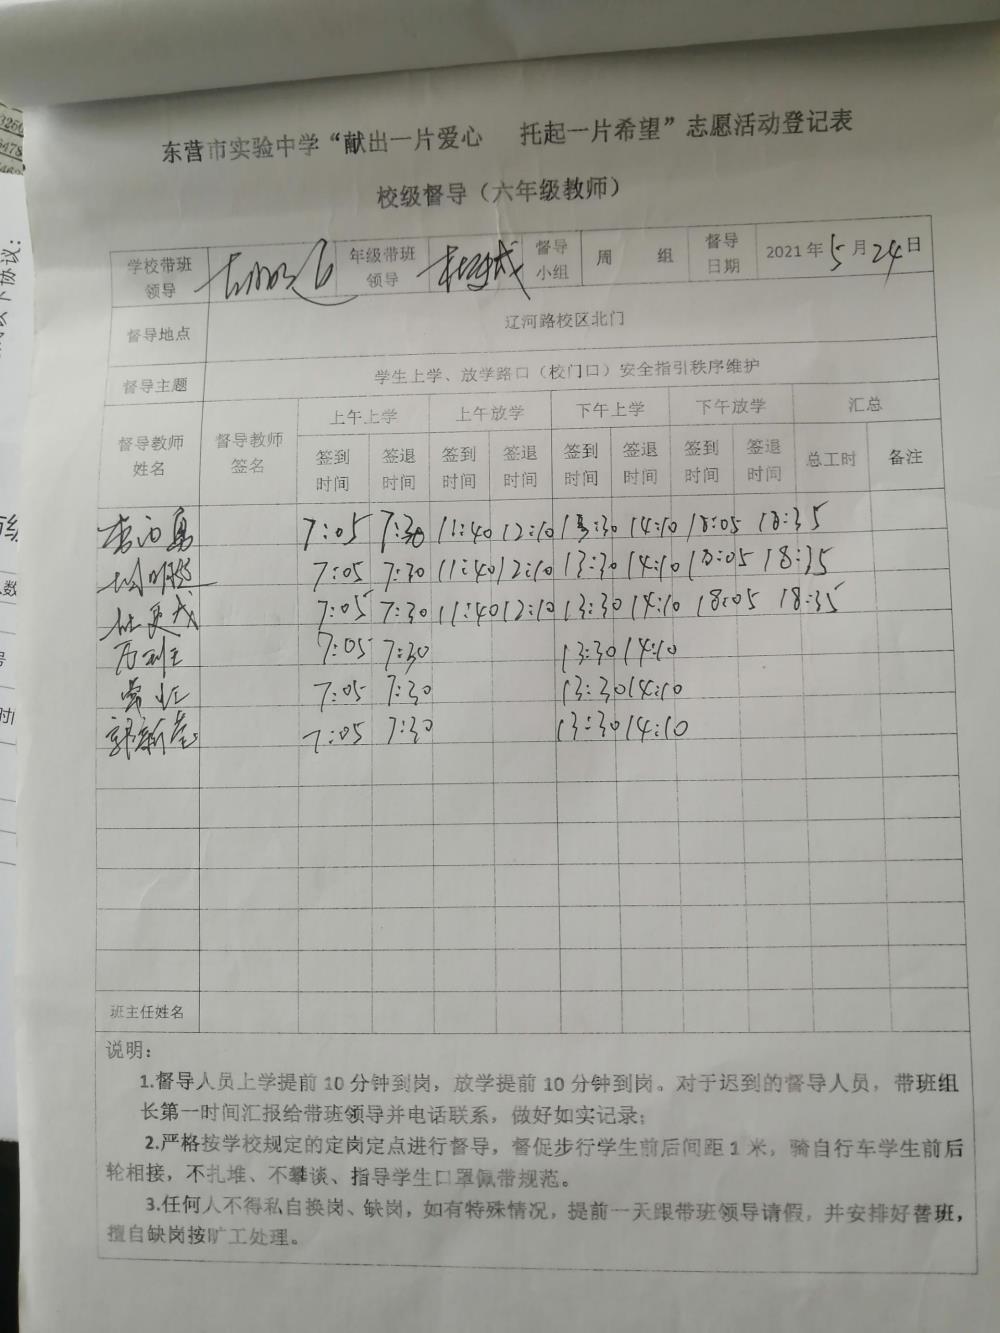 东营市实验中学“献出一片爱心 托起一片希望”志愿活动登记表
校级督导（六年级教师）
学校带班领导 年级带班领导 督导小组 周 组 督导日期 2021年5月24日
督导地点 辽河路校区北门
督导主题 学生上学、放学路口（校门口）安全指引秩序维护
督导教师姓名 督导教师签名 上午上学 上午放学 下午上学 下午放学 汇总
签到时间 签退时间 签到时间 签退时间 签到时间 签退时间 签到时间 签退时间 总工时 备注
7:05 7:30 11:40 12:10 13:30 14:10 18:05 18:35
7:05 7:30 11:40 12:10 13:30 14:10 18:05 18:35
7:05 7:30 11:40 12:10 13:30 14:10 18:05 18:35
7:05 7:30 13:30 14:10
7:05 7:30 13:30 14:10
郭新 7:05 7:30 13:30 14:10
班主任姓名
说明：
1.督导人员上学提前10分钟到岗，放学提前10分钟到岗。对于迟到的督导人员，带班组
长第一时间汇报给带班领导并电话联系，做好如实记录；
2.严格按学校规定的定岗定点进行督导，督促步行学生前后间距1米，骑自行车学生前后
轮相接，不扎堆、不攀谈、指导学生口罩佩带规范。
3.任何人不得私自换岗、缺岗，如有特殊情况，提前一天跟带班领导请假，并安排好替班，
擅自缺岗按旷工处理。